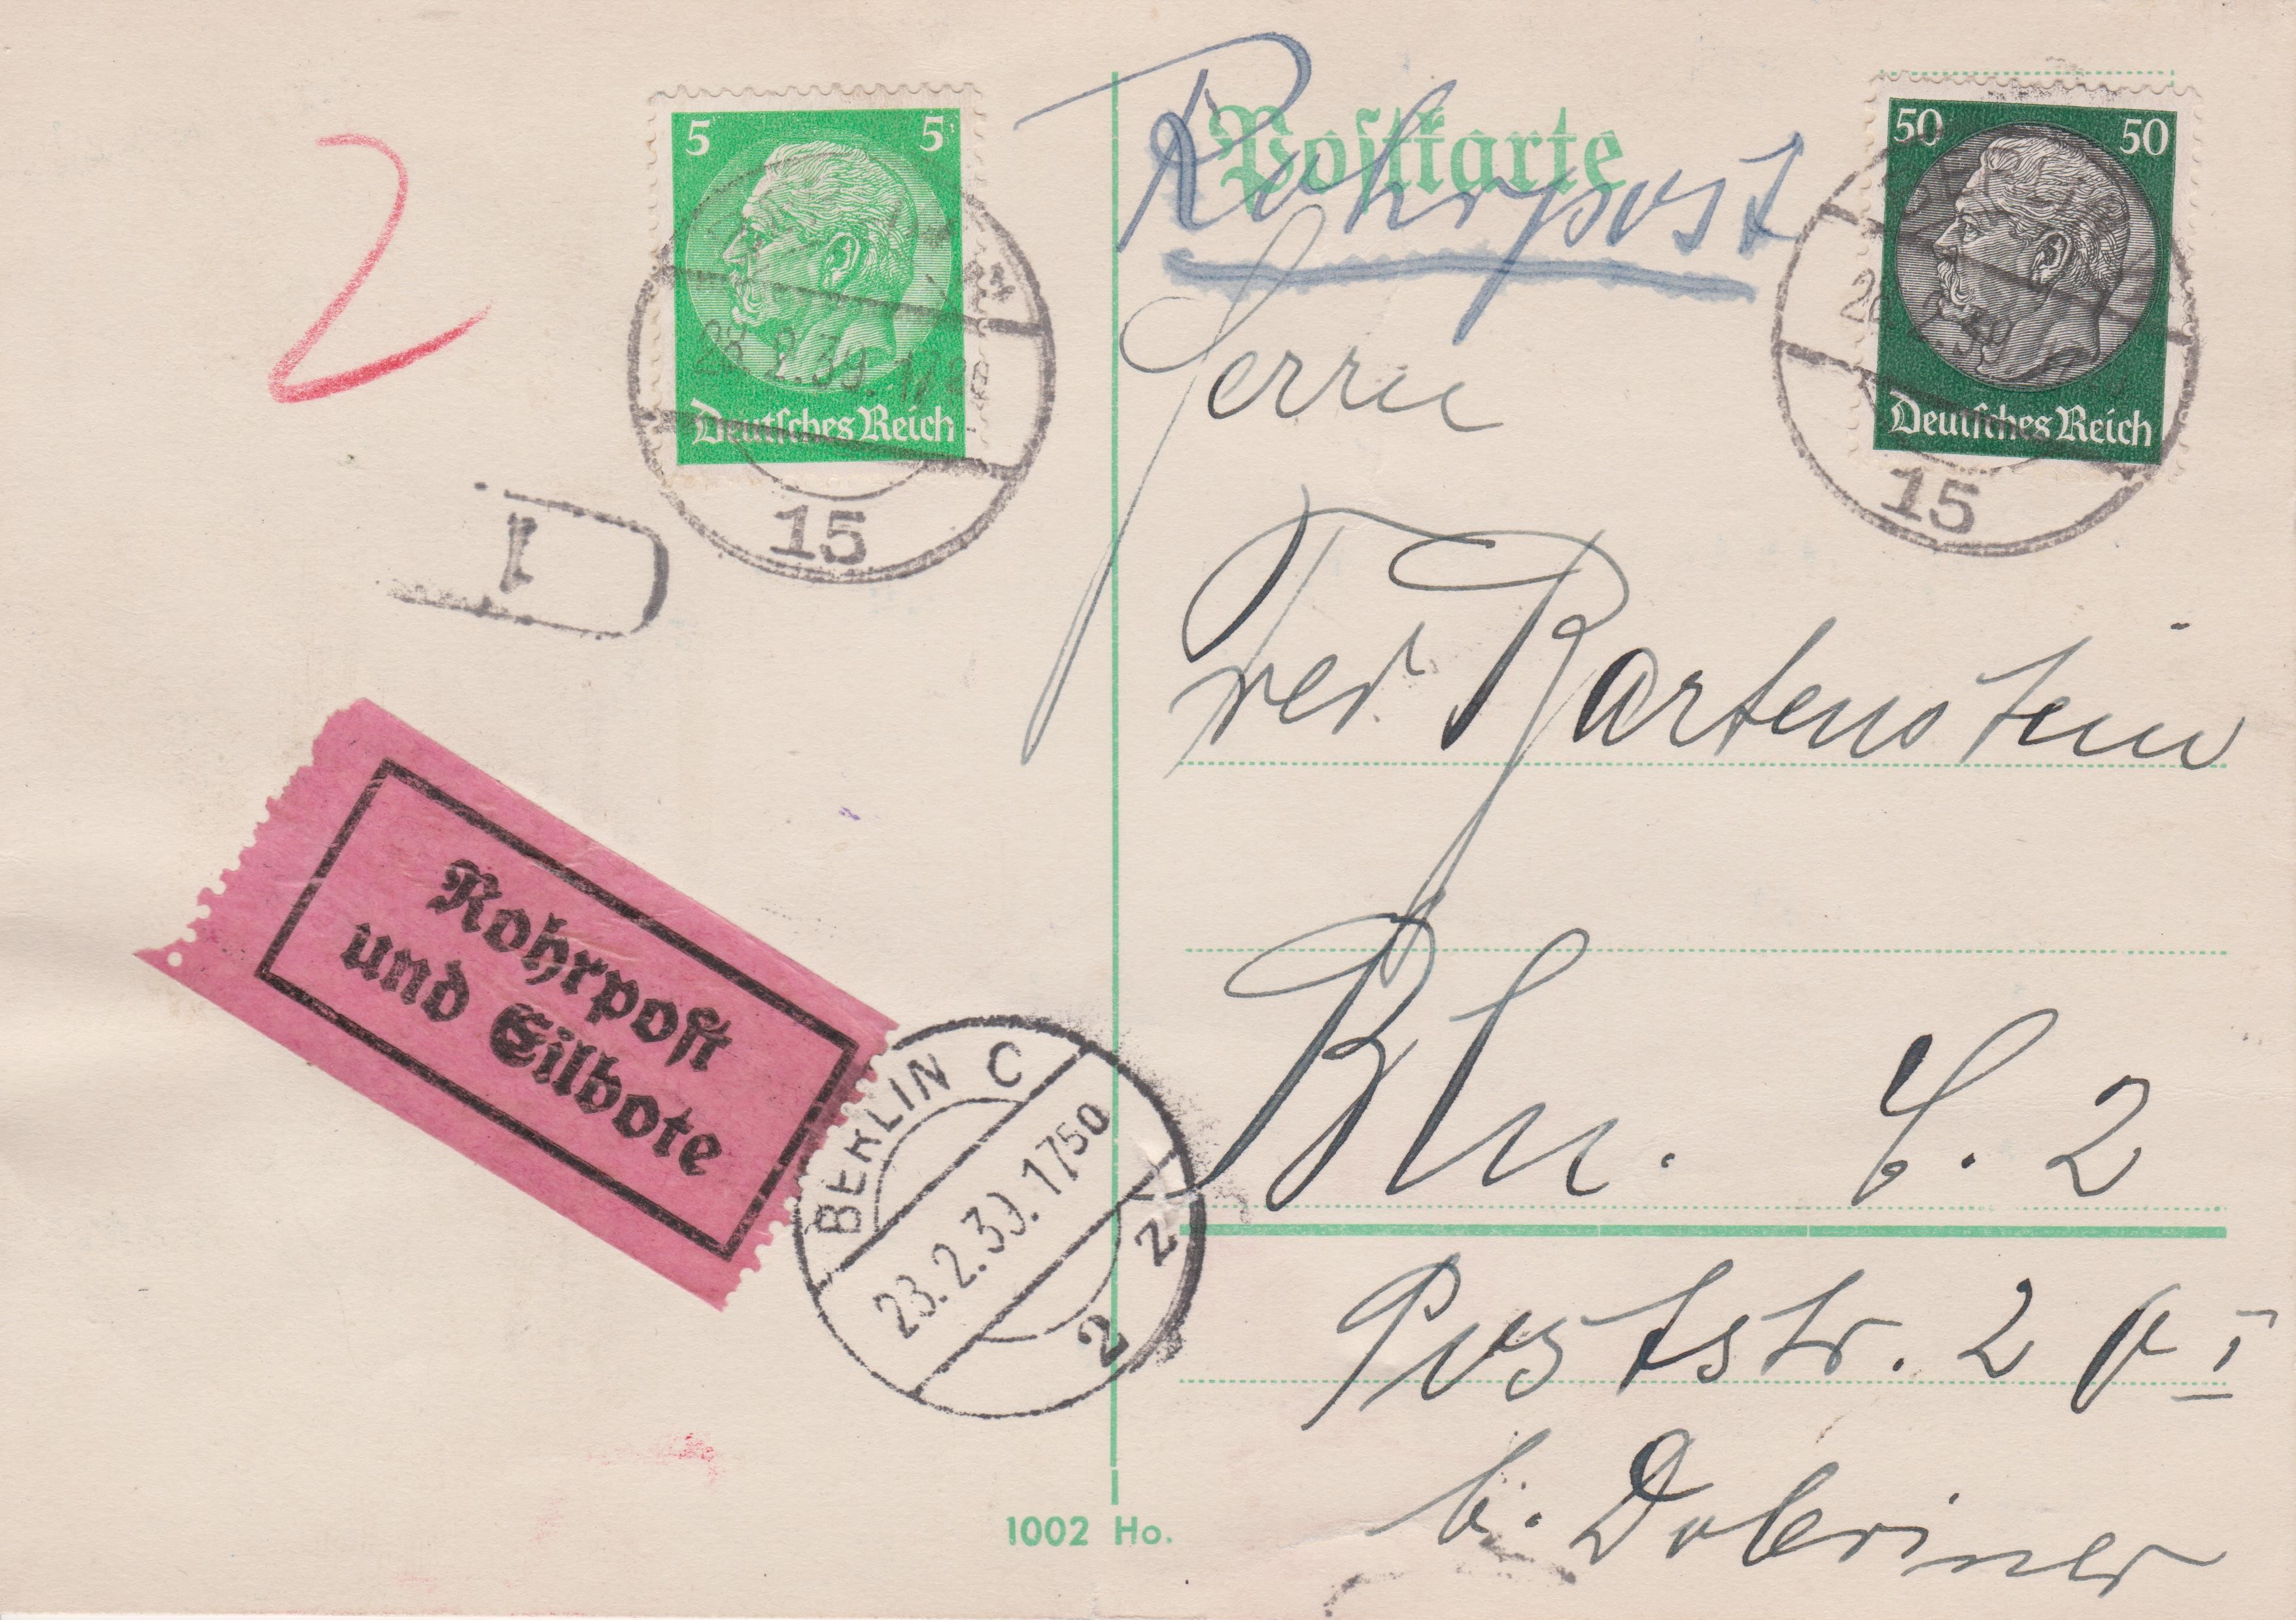 Postkarte
Rohrpost
2
5 5
Deutsches Reich
23.2.39.17
15
50 50
Deutsches Reich
15
I
Herrn
Bartenstein
Bln. C. 2
Poststr. 2 I
b. Dobriner
Rohrpost
und Eilbote
BERLIN C
23.2.39.1750
2 z
1002 Ho.